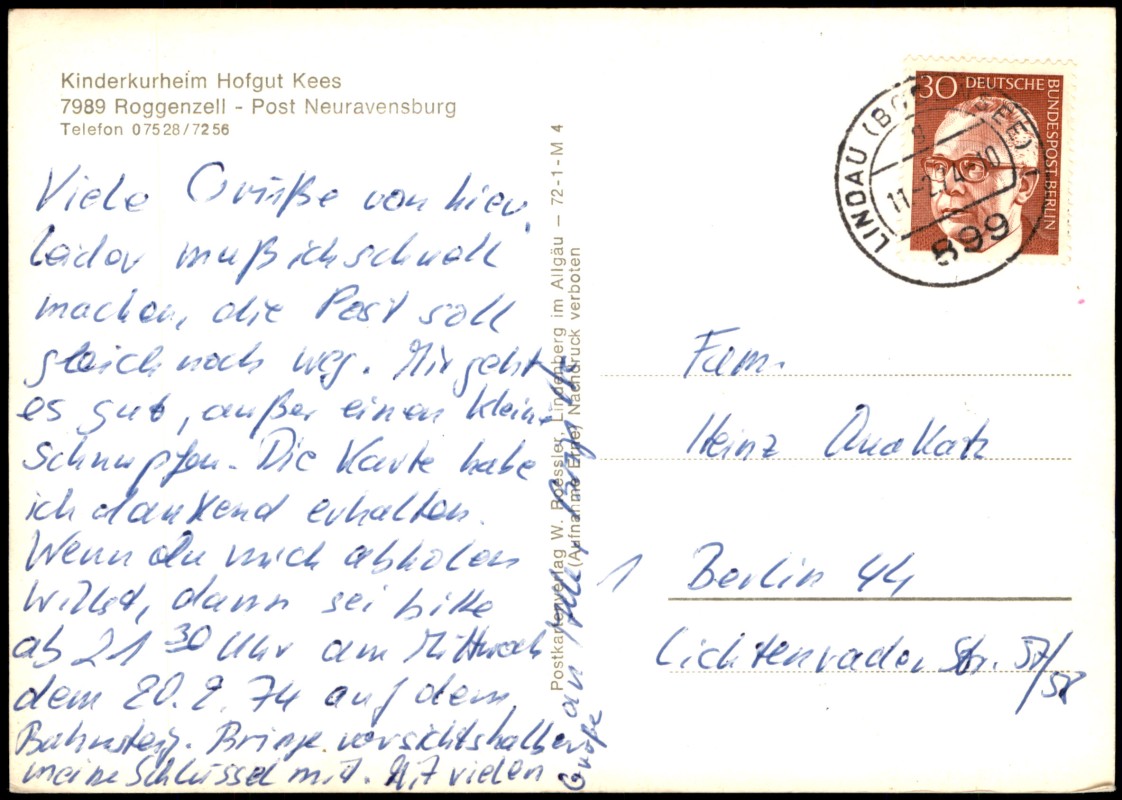 Kinderkurheim Hofgut Kees
7989 Roggenzell - Post Neuravensburg
Telefon 07528/7256
Viele Grüße von hier.
Leider muß ich schnell
machen, die Post soll
gleich noch weg. Mir geht
es gut, außer einen kleinen
Schnupfen. Die Karte habe
ich dankend erhalten.
Wenn du mich abholen
willst, dann sei bitte
ab 21 30 Uhr am Mittwoch
dem 20.2.74 auf dem
Bahnsteig. Bringe vorsichtshalber
meine Schlüssel mit. Mit vielen
Grüße an Alle,
Postkartenverlag W. Roessler, Lindenberg im Allgäu — 72-1-M 4
(Aufnahme Nachdruck verboten
30 DEUTSCHE BUNDESPOST BERLIN
LINDAU (BODENSEE) 1
11.-2.74-10
899
Fam.
Heinz
1 Berlin 44
Lichtenrader Str. 57/58